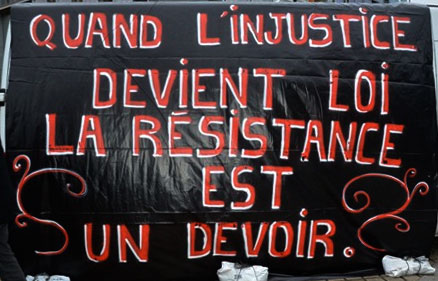 QUAND L'INJUSTICE
DEVIENT LOI
LA RÉSISTANCE
EST
UN DEVOIR.